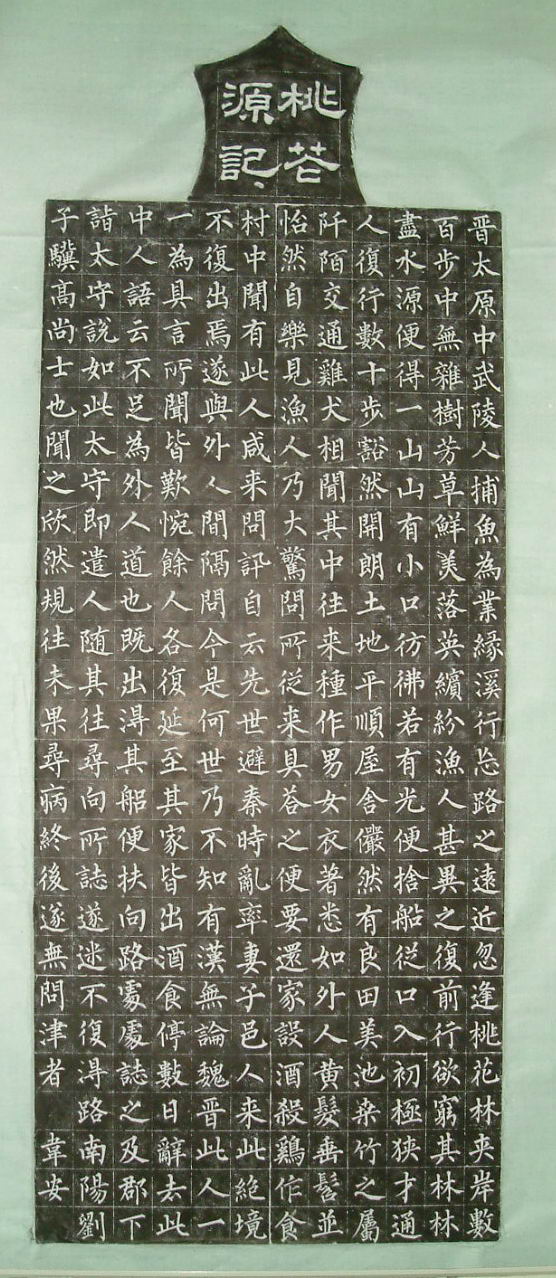 桃花
源記
晋太原中武陵人捕魚為業緣溪行忘路之遠近忽逢桃花林夾岸數
百步中無雜樹芳草鮮美落英繽紛漁人甚異之復前行欲窮其林林
盡水源便得一山山有小口彷彿若有光便捨船従口入初極狹才通
人復行數十步豁然開朗土地平順屋舍儼然有良田美池桑竹之屬
阡陌交通雞犬相聞其中往来種作男女衣著悉如外人黄髮垂髫並
怡然自樂見漁人乃大驚問所従来具答之便要還家設酒殺鷄作食
村中聞有此人咸来問訊自云先世避秦時亂率妻子邑人来此絶境
不復出焉遂與外人間隔問今是何世乃不知有漢無論魏晋此人一
一為具言所聞皆歎惋餘人各復延至其家皆出酒食停數日辭去此
中人語云不足為外人道也既出得其船便扶向路處處誌之及郡下
詣太守說如此太守即遣人随其往尋向所誌遂迷不復得路南陽劉
子驥高尚士也聞之欣然規往未果尋病終後遂無問津者 韋安